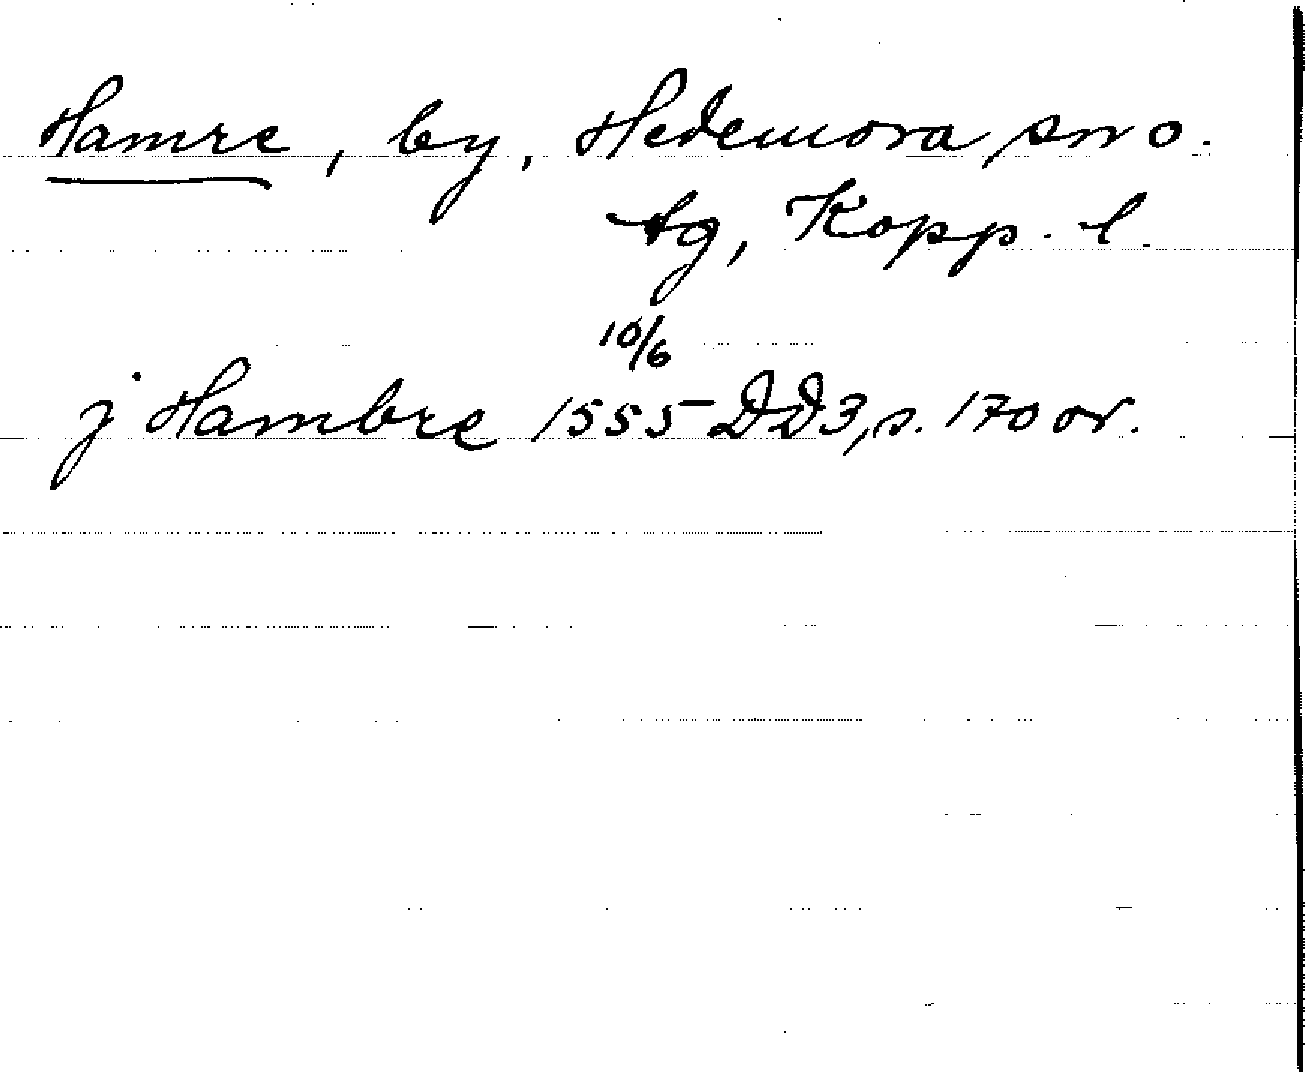 Hamre, by, Hedemora sn o.
tg, Kopp. l.
10/6
j Hambre 1555 DD3, s. 170 or.